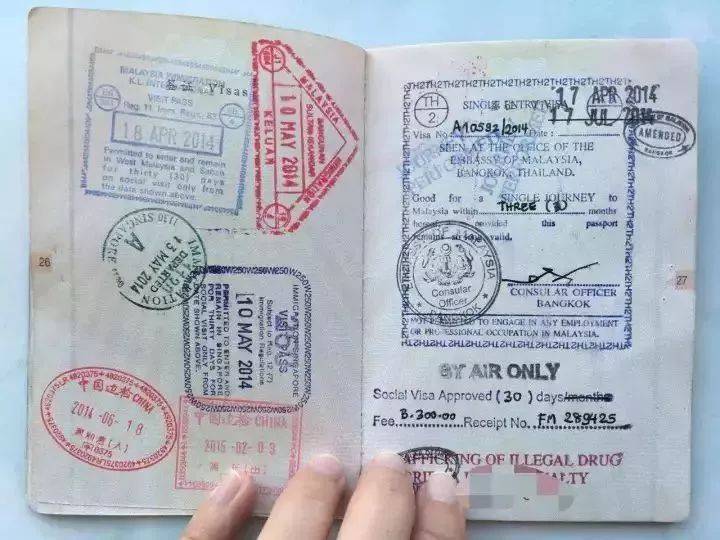 签证 Visas
MALAYSIA IMMIGRATION
VISIT PASS
18 APR 2014
Permitted to enter and remain
in West Malaysia and Sabah
for thirty (30) days
on social visit only from
the date shown above.
MALAYSIA
10 MAY 2014
KELUAR
SINGAPORE
A
13 MAY 2014
DEPARTED
IMMIGRATION
VISIT PASS
Immigration Regulations
10 MAY 2014
PERMITTED TO ENTER AND
REMAIN IN SINGAPORE
FOR THIRTY DAYS
SOCIAL VISIT ONLY FROM
DATE SHOWN ABOVE
26
中国边检 CHINA
2014-06-18
(入)
中国边检 CHINA
2015-02-03
(出)
TH
2
SINGLE ENTRY VISA
17 APR 2014
17 JUL 2014
Visa No A10592/2014 Date :
AMENDED
BANGKOK
SEEN AT THE OFFICE OF THE
EMBASSY OF MALAYSIA,
BANGKOK, THAILAND.
Good for a SINGLE JOURNEY to
Malaysia within THREE (3) months
hereof, provided this passport
remains so long valid.
Consular
Officer
CONSULAR OFFICER
BANGKOK
NOT PERMITTED TO ENGAGE IN ANY EMPLOYMENT
OR PROFESSIONAL OCCUPATION IN MALAYSIA.
27
BY AIR ONLY
Social Visa Approved (30) days/months
Fee B.300.00 Receipt No. FM 289425
TRAFFICKING OF ILLEGAL DRUG